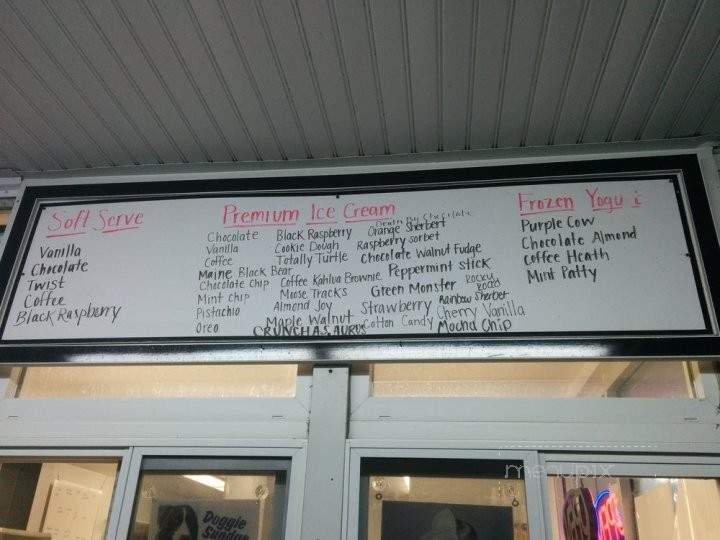 Soft Serve
Vanilla
Chocolate
Twist
Coffee
Black Raspberry
Premium Ice Cream
Chocolate
Vanilla
Coffee
Maine Black Bear
Chocolate Chip
Mint Chip
Pistachio
Oreo
Black Raspberry
Cookie Dough
Totally Turtle
Coffee Kahlua Brownie
Moose Tracks
Almond Joy
Maple Walnut
CRUNCHASAURUS
Death By Chocolate
Orange Sherbert
Raspberry sorbet
Chocolate Walnut Fudge
Peppermint stick
Green Monster
Rocky Road
Strawberry
Rainbow Sherbet
Cotton Candy
Cherry Vanilla
Mocha Chip
Frozen Yogu i
Purple Cow
Chocolate Almond
Coffee Heath
Mint Patty
menupix
Doggie
Sundae